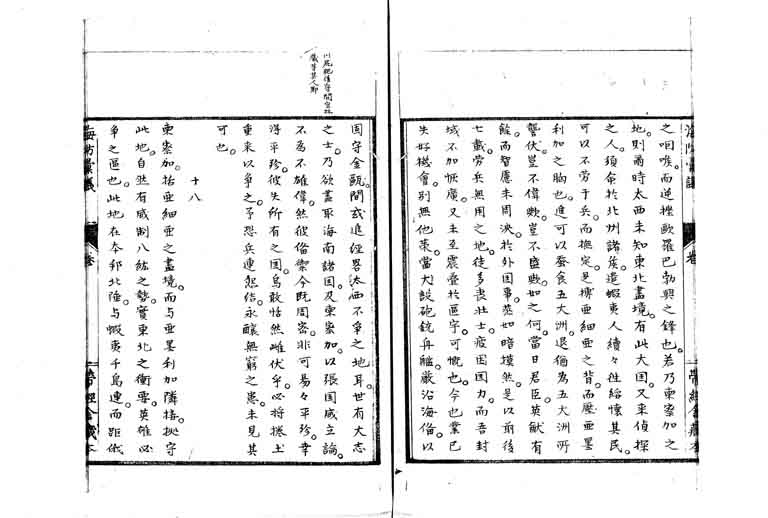 之咽喉。而逆挫歐羅巴勃興之鋒也。若乃東察加之
地。則爾時太西未知東北盡境。有此大国。又未偵探
之人。須命於北州諸侯。遣蝦夷人續々徃給懐其民。
可以不労于兵。而撫定。是搏亜細亜之背。而壓亜墨
利加之胸也。進可以蚕食五大洲。退猶為五大洲所
讋伏。豈不偉歟。豈不盛歟。如之何。當日君臣英猷有
餘。而智慮未周決。於外国事。茎如暗摸然。是以前後
七載。労兵無用之地。徒多喪壮士。疲困国力。而吾封
域不加恢廣。又未至震疊於區宇。可慨也。今也業已
失好機會。別無他策。當大設砲銃舟艦。厳沿海備。以
固守金甌。間或進經畧太西不争之地耳。世有大志
之士。乃欲盡取海南諸国。及東察加。以張国威立論。
不為不雄偉。然彼備禦今既周密。非可易々平珍。幸
得平珍。彼失所有之国。烏敢恬然雌伏乎。必将捲土
重来以争之。予恐兵連怨結。永釀無窮之患。未見其
可也。
十八
東察加。括亜細亜之盡境。而与亜墨利加隣接。挾守
此地。自然有威制八紘之勢。實東北之衝要。英雄必
争之區也。此地在本邦北陲。与蝦夷千島連。而距俄
川尻肥後守間宮林
蔵等其人耶
海防彙議
巻
学経舎蔵本